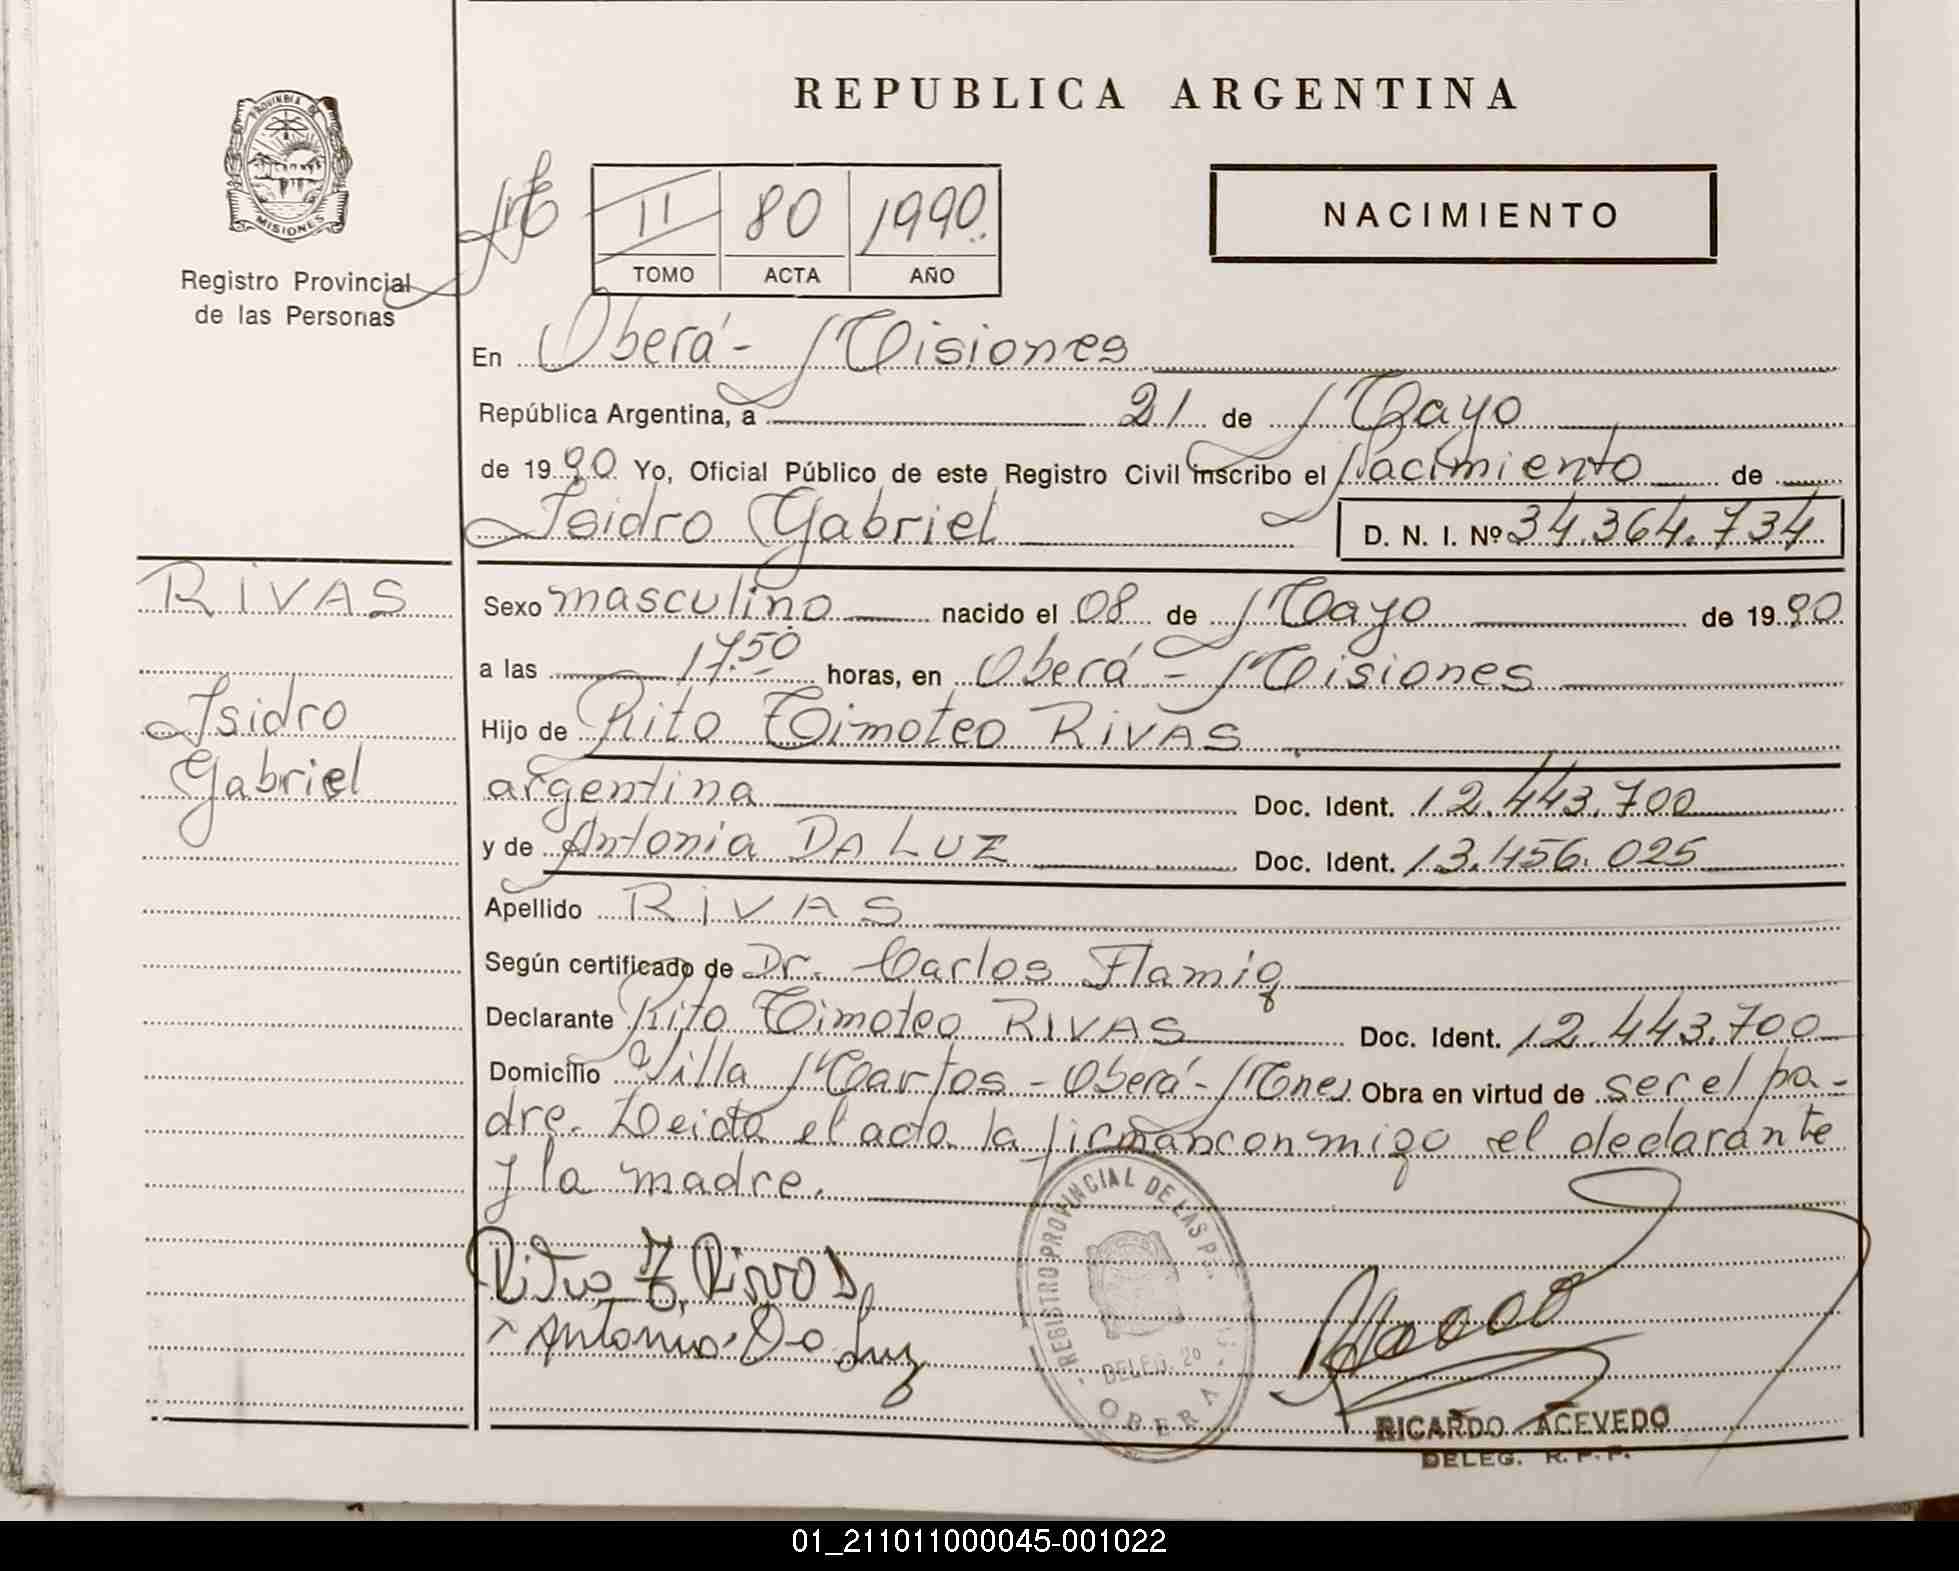 REPUBLICA ARGENTINA
PROVINCIA DE
MISIONES
Registro Provincial
de las Personas
II 80 1990.
TOMO ACTA AÑO
NACIMIENTO
En Oberá - Misiones
República Argentina, a 21 de Mayo
de 1990. Yo, Oficial Público de este Registro Civil inscribo el Nacimiento de
Isidro Gabriel D. N. I. Nº 34.364.734
RIVAS
Isidro
Gabriel
Sexo masculino nacido el 08 de Mayo de 1990
a las 17.50 horas, en Oberá - Misiones
Hijo de Rito Timoteo RIVAS
argentina Doc. Ident. 12.443.700
y de Antonia DA LUZ Doc. Ident. 13.456.025
Apellido RIVAS
Según certificado de Dr. Carlos Flamig
Declarante Rito Timoteo RIVAS Doc. Ident. 12.443.700
Domicilio Villa Martos - Oberá - Mnes Obra en virtud de ser el pa-
dre. Leida el acta la firman conmigo el declarante
y la madre.
REGISTRO PROVINCIAL DE LAS P.
DELEG. 2º
OBERA
Rito T. Rivas
Antonia Da Luz
RICARDO ACEVEDO
DELEG. R. P. P.
01_211011000045-001022